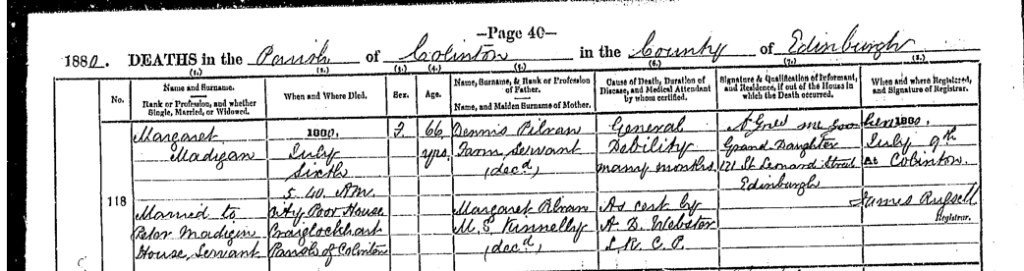 —Page 40—
1880. DEATHS in the Parish of Colinton in the County of Edinburgh
(1.) (2.) (3.) (4.) (5.) (6.) (7.) (8.)
No. Name and Surname. Rank or Profession, and whether Single, Married, or Widowed. When and Where Died. Sex. Age. Name, Surname, & Rank or Profession of Father. Name, and Maiden Surname of Mother. Cause of Death, Duration of Disease, and Medical Attendant by whom certified. Signature & Qualification of Informant, and Residence, if out of the House in which the Death occurred. When and where Registered, and Signature of Registrar.
Margaret 1880, F. 66 Dennis General Agnes 1880,
Madigan July yrs. Farm Servant Debility Grand Daughter July 9th
Sixth (decd) many months 121 St Leonard Street At Colinton.
5.40. A.M. Edinburgh
118 James Russell
Married to City Poor House Margaret As cert by Registrar.
Peter Madigin Craiglockhart M.S. A D. Webster
House, Servant Parish of Colinton (decd) L.R.C.P.